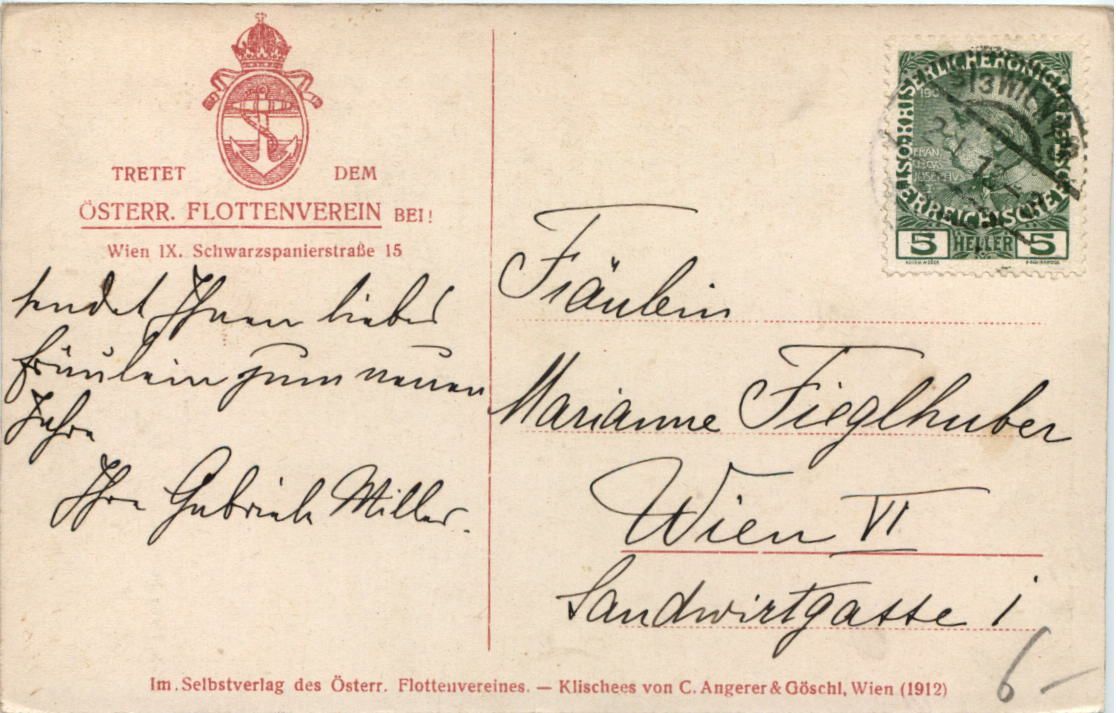 TRETET DEM
ÖSTERR. FLOTTENVEREIN BEI!
Wien IX. Schwarzspanierstraße 15
sendet Ihnen liebes
Fräulein zum neuen
Jahre
Ihre Gabriele Miller.
5 HELLER 5
Fräulein
Marianne Fieglhuber
Wien VI
Sandwirtgasse 1
6-
Im Selbstverlag des Österr. Flottenvereines. — Klischees von C. Angerer & Göschl, Wien (1912)